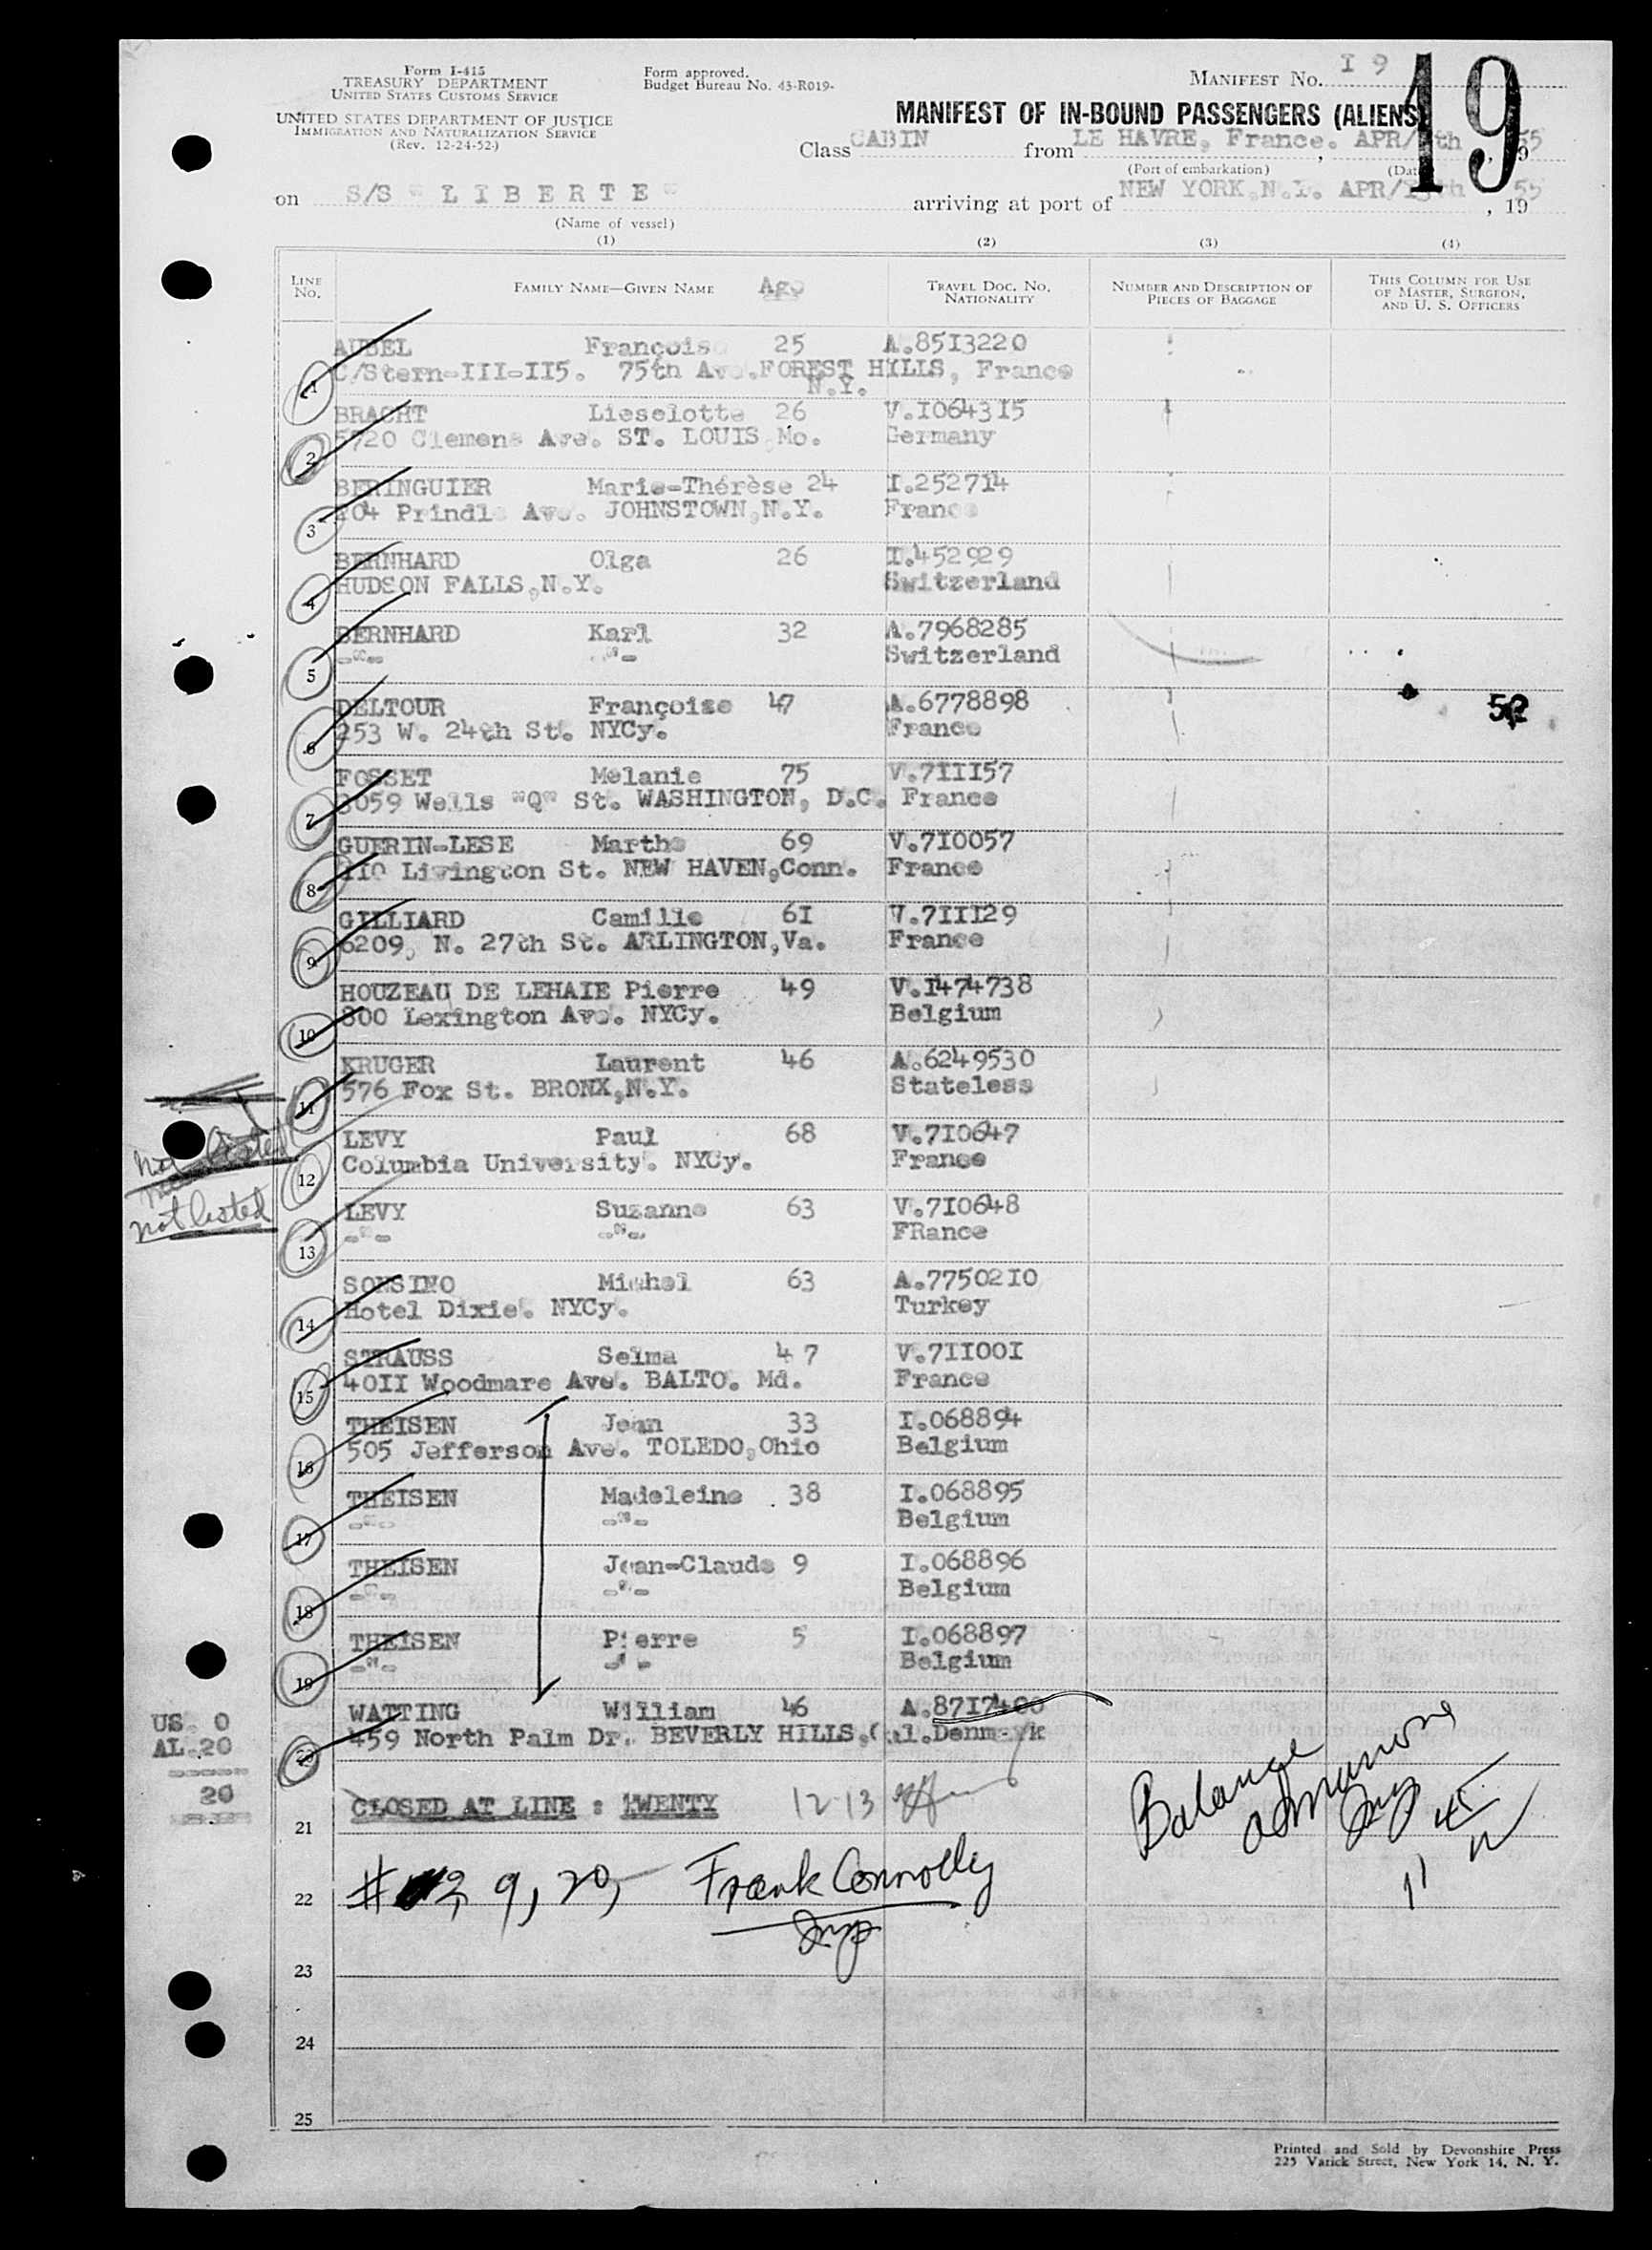 Form I-415
TREASURY DEPARTMENT
UNITED STATES CUSTOMS SERVICE
UNITED STATES DEPARTMENT OF JUSTICE
IMMIGRATION AND NATURALIZATION SERVICE
(Rev. 12-24-52)
Form approved.
Budget Bureau No. 43-R019-
MANIFEST No. I 9
19
MANIFEST OF IN-BOUND PASSENGERS (ALIENS)
Class CABIN from LE HAVRE, France. APR/ th, 1955
(Port of embarkation) (Date)
on S/S " L I B E R T E " arriving at port of NEW YORK,N.Y. APR/ th, 1955
(Name of vessel)
(1) (2) (3) (4)
LINE No. FAMILY NAME—GIVEN NAME Age TRAVEL DOC. NO. NATIONALITY NUMBER AND DESCRIPTION OF PIECES OF BAGGAGE THIS COLUMN FOR USE OF MASTER, SURGEON, AND U. S. OFFICERS
1 AUBEL François 25 A.8513220
C/Stern-III-II5. 75th Ave.FOREST HILLS, France
N.Y.
2 BRACHT Lieselotte 26 V.I064315
5720 Clemens Ave. ST. LOUIS,Mo. Germany
3 BERINGUIER Marie-Thérèse 24 I.252714
404 Prindle Ave. JOHNSTOWN,N.Y. France
4 BERNHARD Olga 26 I.452929
HUDSON FALLS,N.Y. Switzerland
5 BERNHARD Karl 32 A.7968285
-"- -"- Switzerland
6 DELTOUR Françoise 47 A.6778898
253 W. 24th St. NYCy. France
52
7 FOSSET Melanie 75 V.7III57
3059 Wells "Q" St. WASHINGTON, D.C. France
8 GUERIN-LESE Marthe 69 V.7I0057
110 Livington St. NEW HAVEN,Conn. France
9 GILLIARD Camille 6I V.7III29
6209, N. 27th St. ARLINGTON,Va. France
10 HOUZEAU DE LEHAIE Pierre 49 V.I474738
800 Lexington Ave. NYCy. Belgium
11 KRUGER Laurent 46 A.6249530
576 Fox St. BRONX,N.Y. Stateless
12 LEVY Paul 68 V.7I0647
Columbia University. NYCy. France
not listed
13 LEVY Suzanne 63 V.7I0648
-"- -"- FRance
14 SONSINO Michel 63 A.77502I0
Hotel Dixie. NYCy. Turkey
15 STRAUSS Selma 47 V.7II00I
40II Woodmare Ave. BALTO. Md. France
16 THEISEN Jean 33 I.068894
505 Jefferson Ave. TOLEDO,Ohio Belgium
17 THEISEN Madeleine 38 I.068895
-"- -"- Belgium
18 THEISEN Jean-Claude 9 I.068896
-"- -"- Belgium
19 THEISEN Pierre 5 I.068897
-"- -"- Belgium
20 WATTING William 46 A.8717400
459 North Palm Dr. BEVERLY HILLS,Cal.Denmark
US. 0
AL.20
20
21 CLOSED AT LINE : TWENTY 12-13
Balance
22 9, 20, Frank Connolly
Insp
23
24
25
Printed and Sold by Devonshire Press
225 Varick Street, New York 14, N. Y.